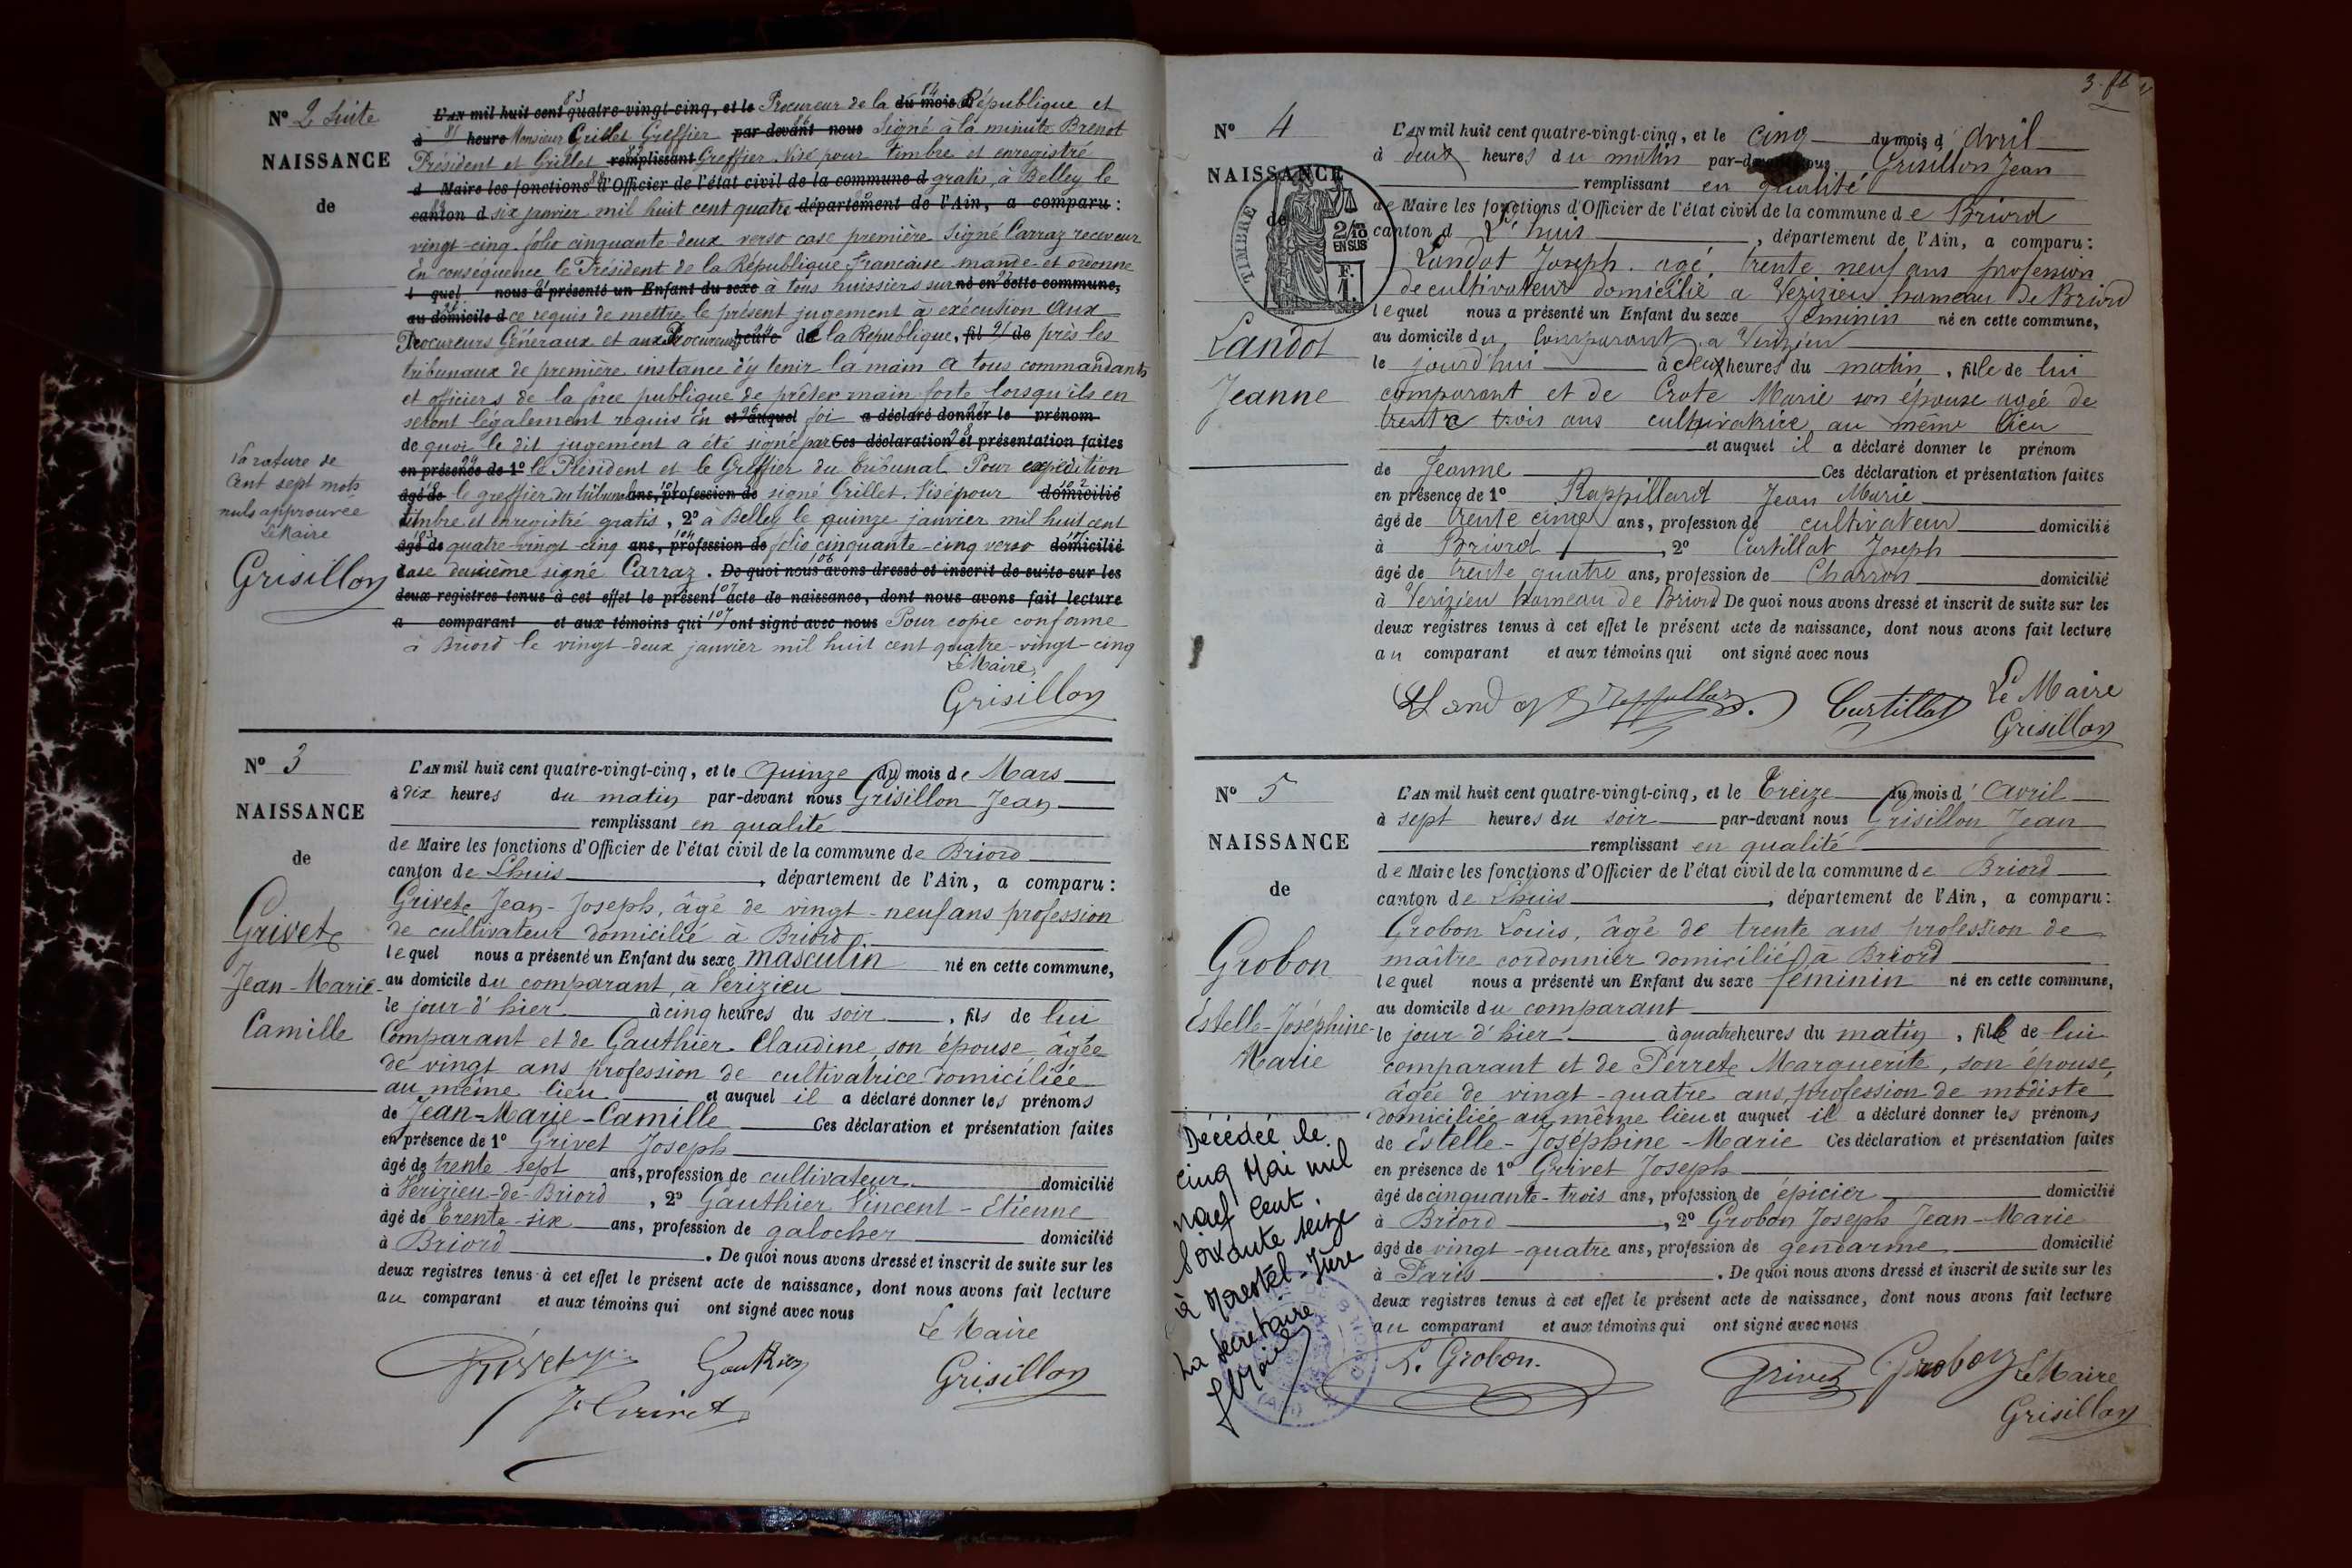 N° 2 Suite
NAISSANCE
de
L'AN mil huit cent quatre-vingt-cinq, et le Procureur de la du mois d République et
à heure Monsieur Grillet Greffier par-devant nous Signé à la minute Brenot
Président et Grillet remplissant Greffier. Visé pour timbre et enregistré
d Maire les fonctions d'Officier de l'état civil de la commune d gratis, à Belley le
canton d six janvier mil huit cent quatre département de l'Ain, a comparu :
vingt-cinq folio cinquante deux verso case première Signé Carraz receveur
En conséquence le Président de la République Française mande et ordonne
l quel nous a présenté un Enfant du sexe à tous huissiers sur né en cette commune,
au domicile d ce requis de mettre le présent jugement à exécution aux
Procureurs Généraux et aux Procureurs heure de la République, fil de près les
tribunaux de première instance d'y tenir la main à tous commandants
et officiers de la force publique de prêter main forte lorsqu'ils en
seront légalement requis En et auquel foi a déclaré donner le prénom
de quoi le dit jugement a été signé par Ces déclaration et présentation faites
en présence de 1° le Président et le Greffier du tribunal Pour expédition
âgé de le greffier du tribunal ans, profession de signé Grillet. Visé pour domicilié
timbre et enregistré gratis, 2° à Belley le quinze janvier mil huit cent
âgé de quatre-vingt-cinq ans, profession de folio cinquante-cinq verso domicilié
case deuxième signé Carraz. De quoi nous avons dressé et inscrit de suite sur les
deux registres tenus à cet effet le présent acte de naissance, dont nous avons fait lecture
a comparant et aux témoins qui ont signé avec nous Pour copie conforme
à Briord le vingt-deux janvier mil huit cent quatre-vingt-cinq
Le Maire,
Grisillon
la rature de
Cent sept mots
nuls approuvée
Le Maire
Grisillon
N° 3
NAISSANCE
de
Grivet
Jean-Marie-
Camille
L'AN mil huit cent quatre-vingt-cinq, et le quinze du mois de Mars
à dix heures du matin par-devant nous Grisillon Jean
remplissant en qualité
de Maire les fonctions d'Officier de l'état civil de la commune de Briord
canton de Lhuis, département de l'Ain, a comparu :
Grivet Jean-Joseph, âgé de vingt-neuf ans profession
de cultivateur domicilié à Briord
lequel nous a présenté un Enfant du sexe masculin né en cette commune,
au domicile du comparant, à Verizieu
le jour d'hier à cinq heures du soir, fils de lui
Comparant et de Gauthier Claudine, son épouse, âgée
de vingt ans, profession de cultivatrice domiciliée
au même lieu et auquel il a déclaré donner les prénoms
de Jean-Marie-Camille Ces déclaration et présentation faites
en présence de 1° Grivet Joseph
âgé de trente sept ans, profession de cultivateur domicilié
à Verizieu-de-Briord, 2° Gauthier Vincent-Etienne
âgé de trente-six ans, profession de galocher domicilié
à Briord. De quoi nous avons dressé et inscrit de suite sur les
deux registres tenus à cet effet le présent acte de naissance, dont nous avons fait lecture
au comparant et aux témoins qui ont signé avec nous
Le Maire
Grivet Gauthier Grisillon
J. Grivet
N° 4
NAISSANCE
de
TIMBRE
2/10
EN SUS
F.
1.
Landot
Jeanne
L'AN mil huit cent quatre-vingt-cinq, et le cinq du mois d'avril
à deux heures du matin par-devant nous Grisillon Jean
remplissant en qualité
de Maire les fonctions d'Officier de l'état civil de la commune de Briord
canton d L'huis, département de l'Ain, a comparu :
Landot Joseph. agé trente neuf ans profession
de cultivateur domicilié a Verizieu hameau de Briord
lequel nous a présenté un Enfant du sexe féminin né en cette commune,
au domicile du Comparant a Verizieu
le jourd'hui à deux heures du matin, fille de lui
comparant et de Crote Marie son épouse agée de
trente trois ans cultivatrice au même lieu
et auquel il a déclaré donner le prénom
de Jeanne Ces déclaration et présentation faites
en présence de 1° Rappillard Jean Marie
âgé de trente cinq ans, profession de cultivateur domicilié
à Briord, 2° Curtillat Joseph
âgé de trente quatre ans, profession de Charron domicilié
à Verizieu hameau de Briord De quoi nous avons dressé et inscrit de suite sur les
deux registres tenus à cet effet le présent acte de naissance, dont nous avons fait lecture
au comparant et aux témoins qui ont signé avec nous
Curtillat Le Maire
Grisillon
N° 5
NAISSANCE
de
Grobon
Estelle-Joséphine-
Marie
L'AN mil huit cent quatre-vingt-cinq, et le treize du mois d'avril
à sept heures du soir par-devant nous Grisillon Jean
remplissant en qualité
de Maire les fonctions d'Officier de l'état civil de la commune de Briord
canton de Lhuis, département de l'Ain, a comparu :
Grobon Louis, âgé de trente ans profession de
maître cordonnier domicilié à Briord
lequel nous a présenté un Enfant du sexe féminin né en cette commune,
au domicile du comparant
le jour d'hier à quatre heures du matin, fille de lui
comparant et de Perret Marguerite, son épouse,
âgée de vingt-quatre ans, profession de modiste
domiciliée au même lieu et auquel il a déclaré donner les prénoms
de Estelle-Joséphine-Marie Ces déclaration et présentation faites
en présence de 1° Grivet Joseph
âgé de cinquante-trois ans, profession de épicier domicilié
à Briord, 2° Grobon Joseph Jean-Marie
âgé de vingt-quatre ans, profession de gendarme domicilié
à Paris. De quoi nous avons dressé et inscrit de suite sur les
deux registres tenus à cet effet le présent acte de naissance, dont nous avons fait lecture
au comparant et aux témoins qui ont signé avec nous
L. Grobon. Grivet Grobon Le Maire
Grisillon
Décédée le
cinq Mai mil
neuf cent
soixante seize
à Morestel-Isère
La Secrétaire